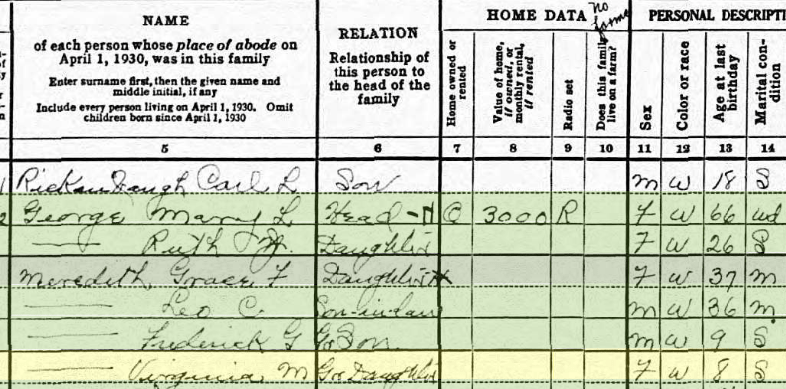 HOME DATA no farm PERSONAL DESCRIPTI
NAME
of each person whose place of abode on April 1, 1930, was in this family
Enter surname first, then the given name and middle initial, if any
Include every person living on April 1, 1930. Omit children born since April 1, 1930
RELATION
Relationship of this person to the head of the family
Home owned or rented
Value of home, if owned, or monthly rental, if rented
Radio set
Does this family live on a farm?
Sex
Color or race
Age at last birthday
Marital con-dition
5 6 7 8 9 10 11 12 13 14
Carl L Son m w 18 S
2 George Mary L Head - H O 3000 R F w 66 wd
—— Ruth Daughter F w 26 S
Meredith, Grace F Daughter F w 37 m
—— Leo C. Son-in-law m w 36 m
—— Frederick G Gr Son m w 9 S
—— Virginia M Gr Daughter F w 8 S